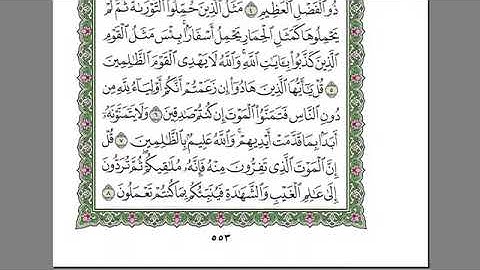 ذُو ٱلْفَضْلِ ٱلْعَظِيمِ ٤ مَثَلُ ٱلَّذِينَ حُمِّلُوا۟ ٱلتَّوْرَىٰةَ ثُمَّ لَمْ
يَحْمِلُوهَا كَمَثَلِ ٱلْحِمَارِ يَحْمِلُ أَسْفَارًۢا بِئْسَ مَثَلُ ٱلْقَوْمِ
ٱلَّذِينَ كَذَّبُوا۟ بِـَٔايَٰتِ ٱللَّهِ وَٱللَّهُ لَا يَهْدِى ٱلْقَوْمَ ٱلظَّٰلِمِينَ
٥ قُلْ يَٰٓأَيُّهَا ٱلَّذِينَ هَادُوٓا۟ إِن زَعَمْتُمْ أَنَّكُمْ أَوْلِيَآءُ لِلَّهِ مِن
دُونِ ٱلنَّاسِ فَتَمَنَّوُا۟ ٱلْمَوْتَ إِن كُنتُمْ صَٰدِقِينَ ٦ وَلَا يَتَمَنَّوْنَهُۥٓ
أَبَدًۢا بِمَا قَدَّمَتْ أَيْدِيهِمْ وَٱللَّهُ عَلِيمٌۢ بِٱلظَّٰلِمِينَ ٧ قُلْ
إِنَّ ٱلْمَوْتَ ٱلَّذِى تَفِرُّونَ مِنْهُ فَإِنَّهُۥ مُلَٰقِيكُمْ ثُمَّ تُرَدُّونَ
إِلَىٰ عَٰلِمِ ٱلْغَيْبِ وَٱلشَّهَٰدَةِ فَيُنَبِّئُكُم بِمَا كُنتُمْ تَعْمَلُونَ ٨
٥٥٣